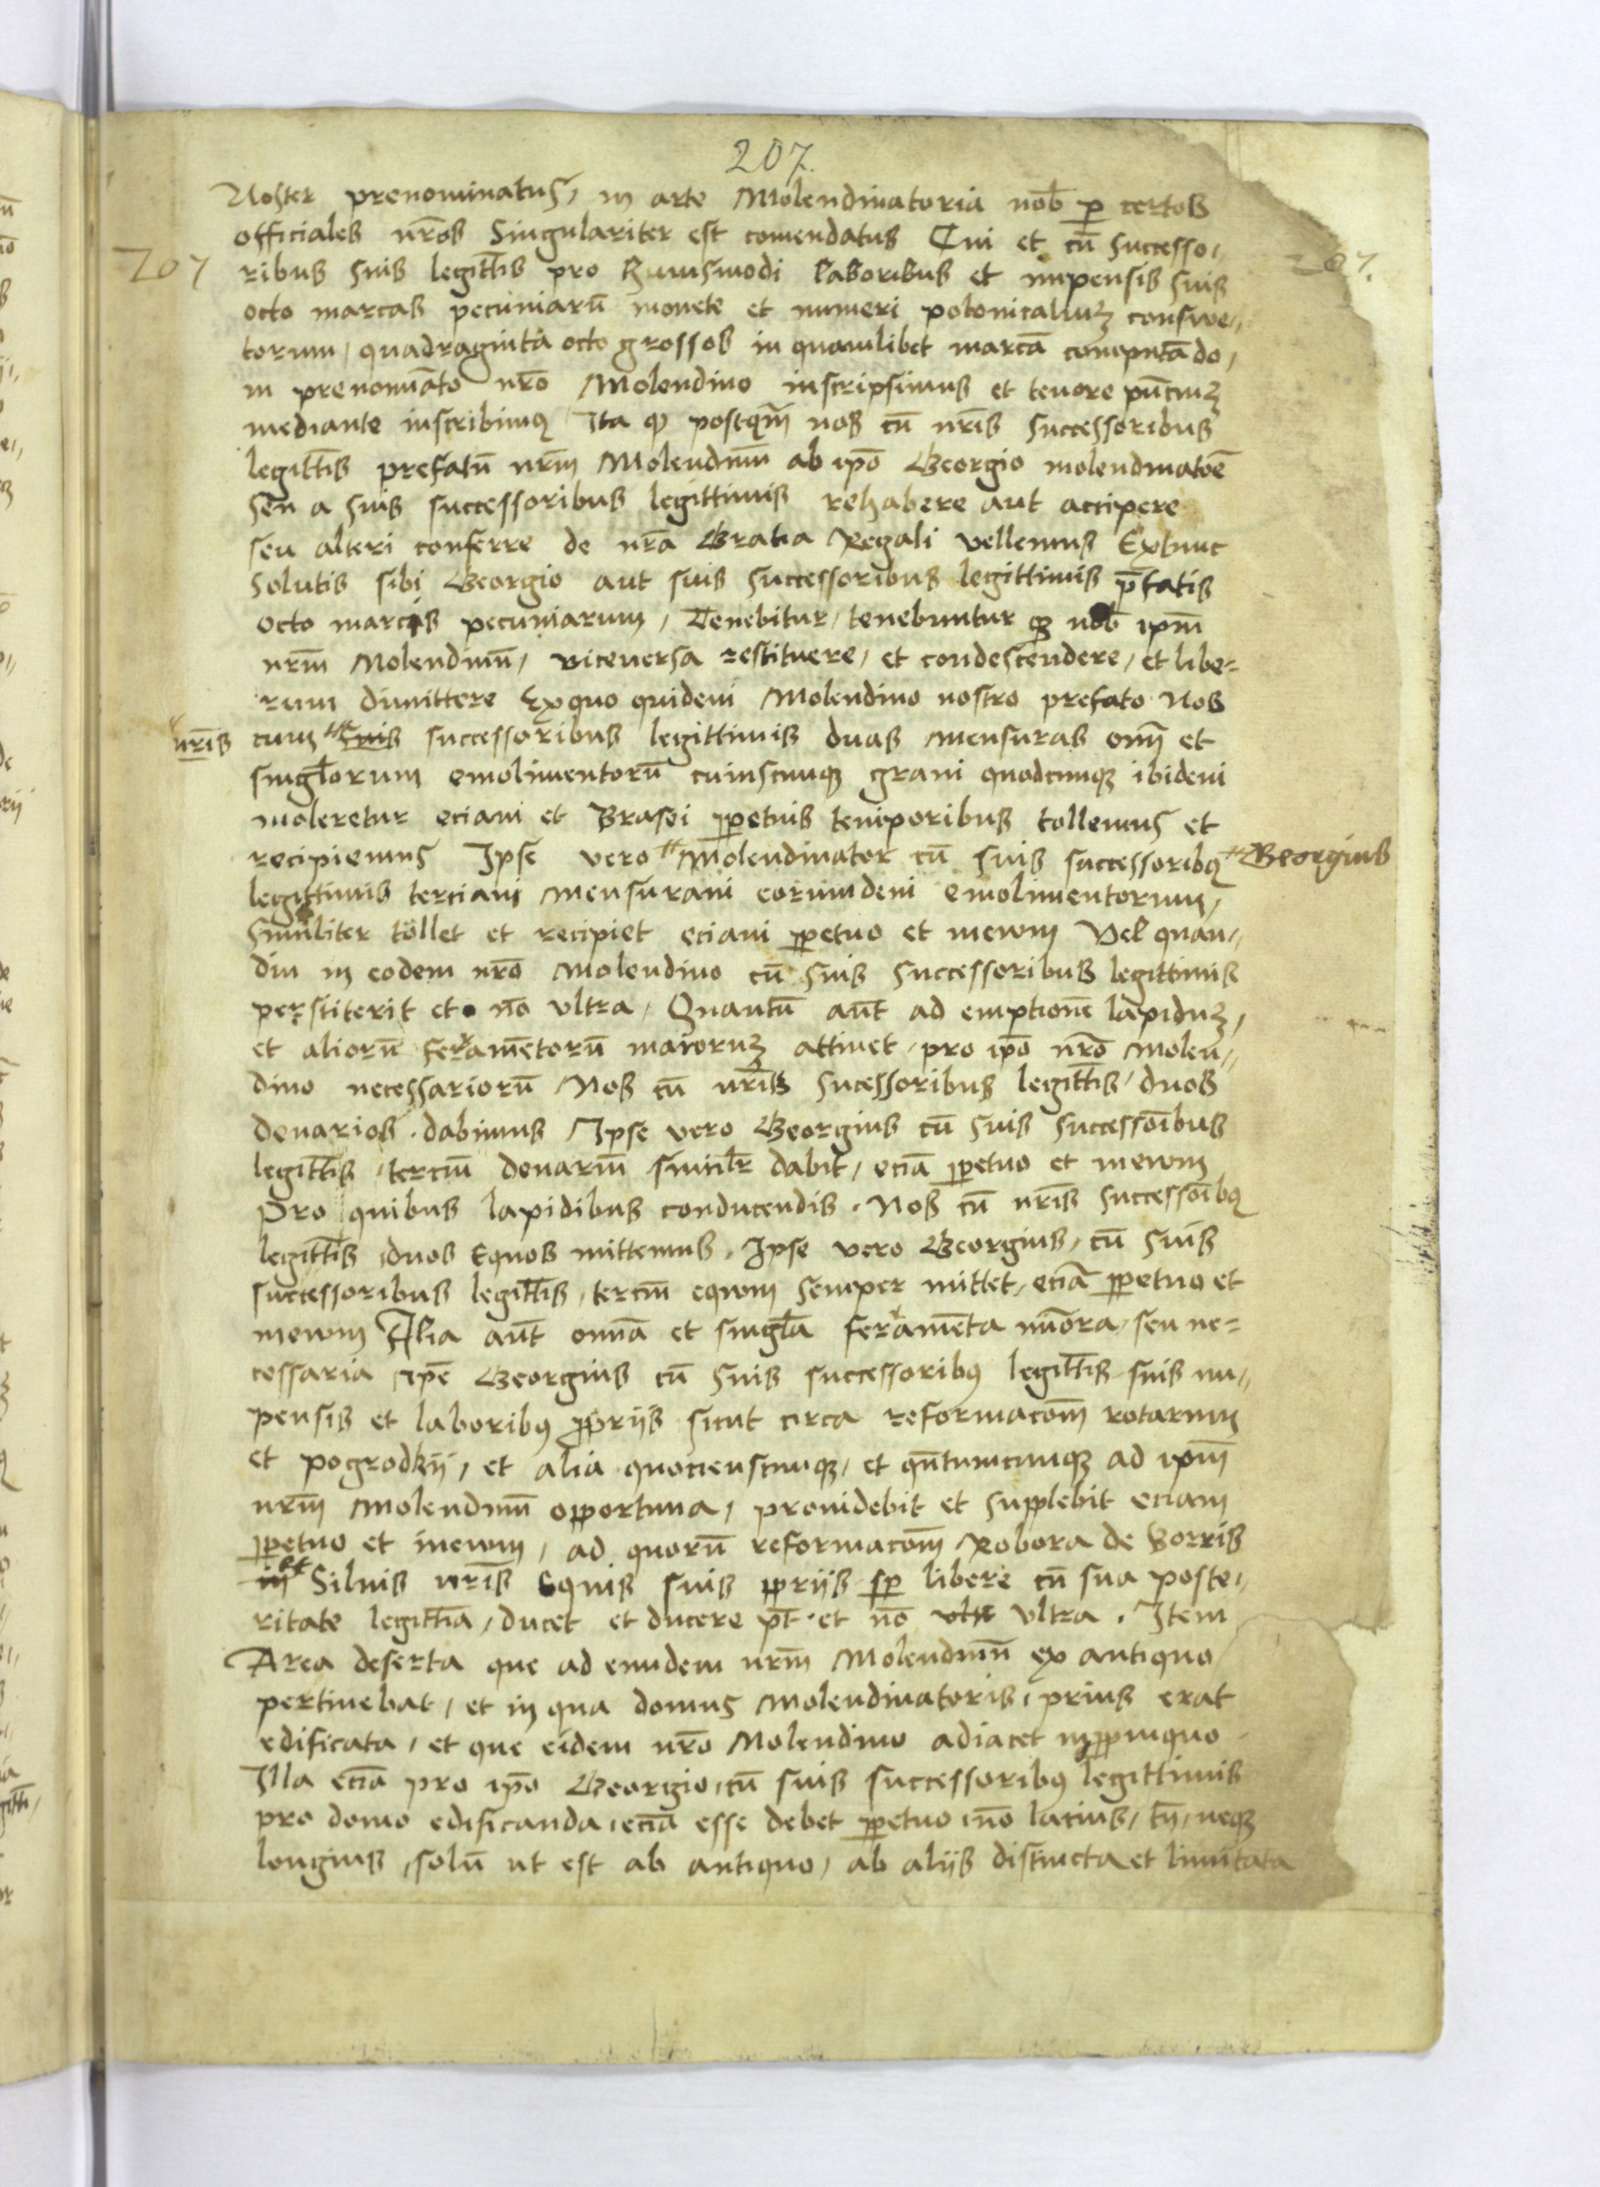 207.
Noster prenominatus, in arte Molendinatoria nob̄ p̄ certos
officiales nr̄os Singulariter est comendatus Cui et cū successo,
207 ribus suis legittīs pro huiusmodi laboribus et impensis suis 207.
octo marcas pecuniarū monete et numeri polonicaliuꝫ consue,,
torum, quadraginta octo grossos in quamlibet marcā computādo,
in prenoīato nr̄o Molendino inscripsimus et tenore pn̄ciuꝫ
mediante inscribimꝰ Ita ꝙ postqm̄ nos cū nr̄is successoribus
legittīs prefatū nrm̄ Molendinū ab ip̄o Georgio molendinatoē
seu a suis successoribus legittimis rehabere aut accipere
seu alteri conferre de nr̄a Gratia Regali vellemus Extunc
solutis sibi Georgio aut suis successoribus legittimis p̄fatis
octo marcis pecuniarum, Tenebitur, tenebuntur qꝫ nob̄ ipm̄
nrm̄ Molendinū, viceversa restituere, et condescendere, et libe=
rum dimittere Ex quo quidem Molendino nostro prefato Nos
nr̄is cum suis successoribus legittimis duas mensuras om̄ et
singlorum emolimentorū cuiuscunqꝫ grani quodcunqꝫ ibidem
moleretur eciam et Brasei ꝑpetuis temporibus tollemus et
recipiemus Ipse vero Molendinator cū suis successoribꝰ Georgius
legittimis terciam mensuram eorumdem emolimentorum,
Similiter tollet et recipiet eciam ꝑpetuo et in ewm Vel quam,,
diu in eodem nr̄o Molendino cū suis successoribus legittimis
perstiterit et nō ultra, Quantū aūt ad emptionē lapiduꝫ,
et aliorū feramētorū maioruꝫ attinet, pro ip̄o nr̄o Molen,,
dino necessariorū Nos cū nr̄is sucessoribus legittīs, duos
denarios dabimus Ipse vero Georgius cū suis successoībus
legittīs, terciū denariū similr̄ dabit, eciā ꝑpetuo et in ewm
Pro quibus lapidibus conducendis. Nos cū nr̄is successoībꝰ
legittīs duos Equos mittemus, Ipse vero Georgius, cū suis
successoribus legittīs, terciū equm semper mittet, eciā ꝑpetuo et
in ewm Alia aūt omīa et singlā feramēta mīora, seu ne=
cessaria ip̄e Georgius cū suis successoribꝰ legittīs suis im,,
pensis et laboribꝰ ꝓpriis sicut circa reformacōm̄ rotarum
et pogrodkij, et alia quocienscunqꝫ, et qn̄tumcunqꝫ ad ipm̄
nrm̄ Molendinū opportuna, providebit et supplebit eciam
ꝑpetuo et in ewm, ad quorū reformacōm̄ Robora de Borris
in et Silvis nr̄is Equis suis ꝓpriis sp̄ libere cū sua poste,
ritate legittīa, ducet et ducere pt̄ et nō ult ultra. Item
Area deserta que ad eundem nrm̄ Molendinū ex antiquo
pertinebat, et in qua domus Molendinatoris, prius erat
edificata, et que eidem nr̄o Molendino adiacet in ꝓpinquo
Illa eciā pro ip̄o Georgio, cū suis successoribꝰ legittimis
pro domo edificanda, eciā esse debet ꝑpetuo, nō lacius, tn̄, neqꝫ
longius, solū ut est ab antiquo, ab aliis distincta et limitata